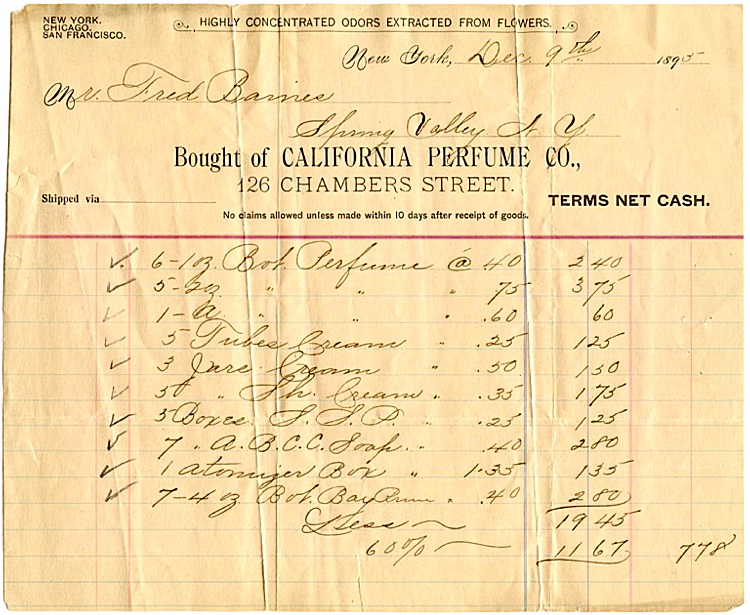 NEW YORK.
CHICAGO.
SAN FRANCISCO.
HIGHLY CONCENTRATED ODORS EXTRACTED FROM FLOWERS.
New York, Dec. 9th 1895
Mr. Fred Barnes
Spring Valley N. Y.
Bought of CALIFORNIA PERFUME CO.,
126 CHAMBERS STREET.
Shipped via
TERMS NET CASH.
No claims allowed unless made within 10 days after receipt of goods.
6-1oz. Bot. Perfume @ .40 2 40
5-2oz " " " 75 3 75
1- " " .60 60
5 Tubes Cream " .25 1 25
3 Jars Cream " .50 1 50
5 " Sh. Cream " .35 1 75
5 Boxes " .25 1 25
7 " A.B.C.C. Soap " .40 2 80
1 atomizer Box " 1.35 1 35
7-4 oz. Bot. Bay Rum " .40 2 80
Less 19 45
60% 11 67 7 78